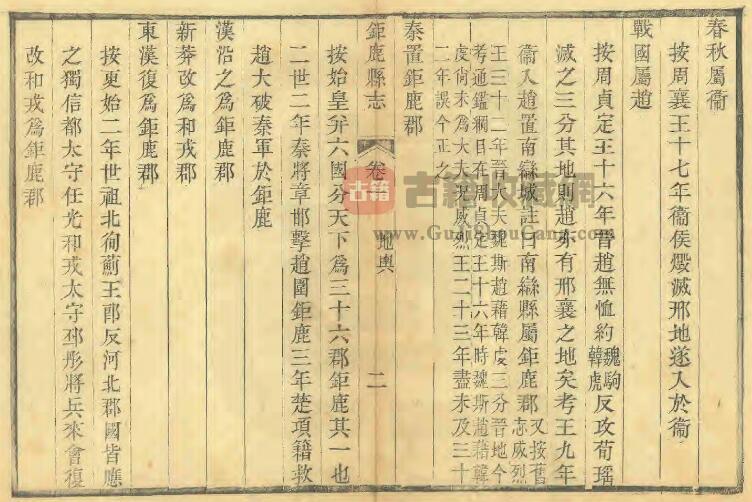 春秋屬衞
按周襄王十七年衞侯燬滅邢地遂入於衞
戰國屬趙
按周貞定王十六年晉趙無恤約魏駒韓虎反攻荀瑶
滅之三分其地則趙亦有邢襄之地矣考王九年
衞入趙置南䜌城註曰南䜌縣屬鉅鹿郡又按舊志威烈
王二十二年晉大夫魏斯趙藉韓虔三分晉地今
考通鑑綱目在周貞定王十六年時魏斯趙藉韓
虔尚未爲大夫現威烈王二十三年盡未及三十
二年誤今正之
秦置鉅鹿郡
鉅鹿縣志
卷一
地輿
二
按始皇并六國分天下爲三十六郡鉅鹿其一也
二世二年秦將章邯擊趙圍鉅鹿三年楚項籍救
趙大破秦軍於鉅鹿
漢沿之爲鉅鹿郡
新莽改爲和戎郡
東漢復爲鉅鹿郡
按更始二年世祖北徇薊王郎反河北郡國皆應
之獨信都太守任光和戎太守邳彤將兵來會復
改和戎爲鉅鹿郡
古籍
古籍收藏网
www.GuJiShouCang.com